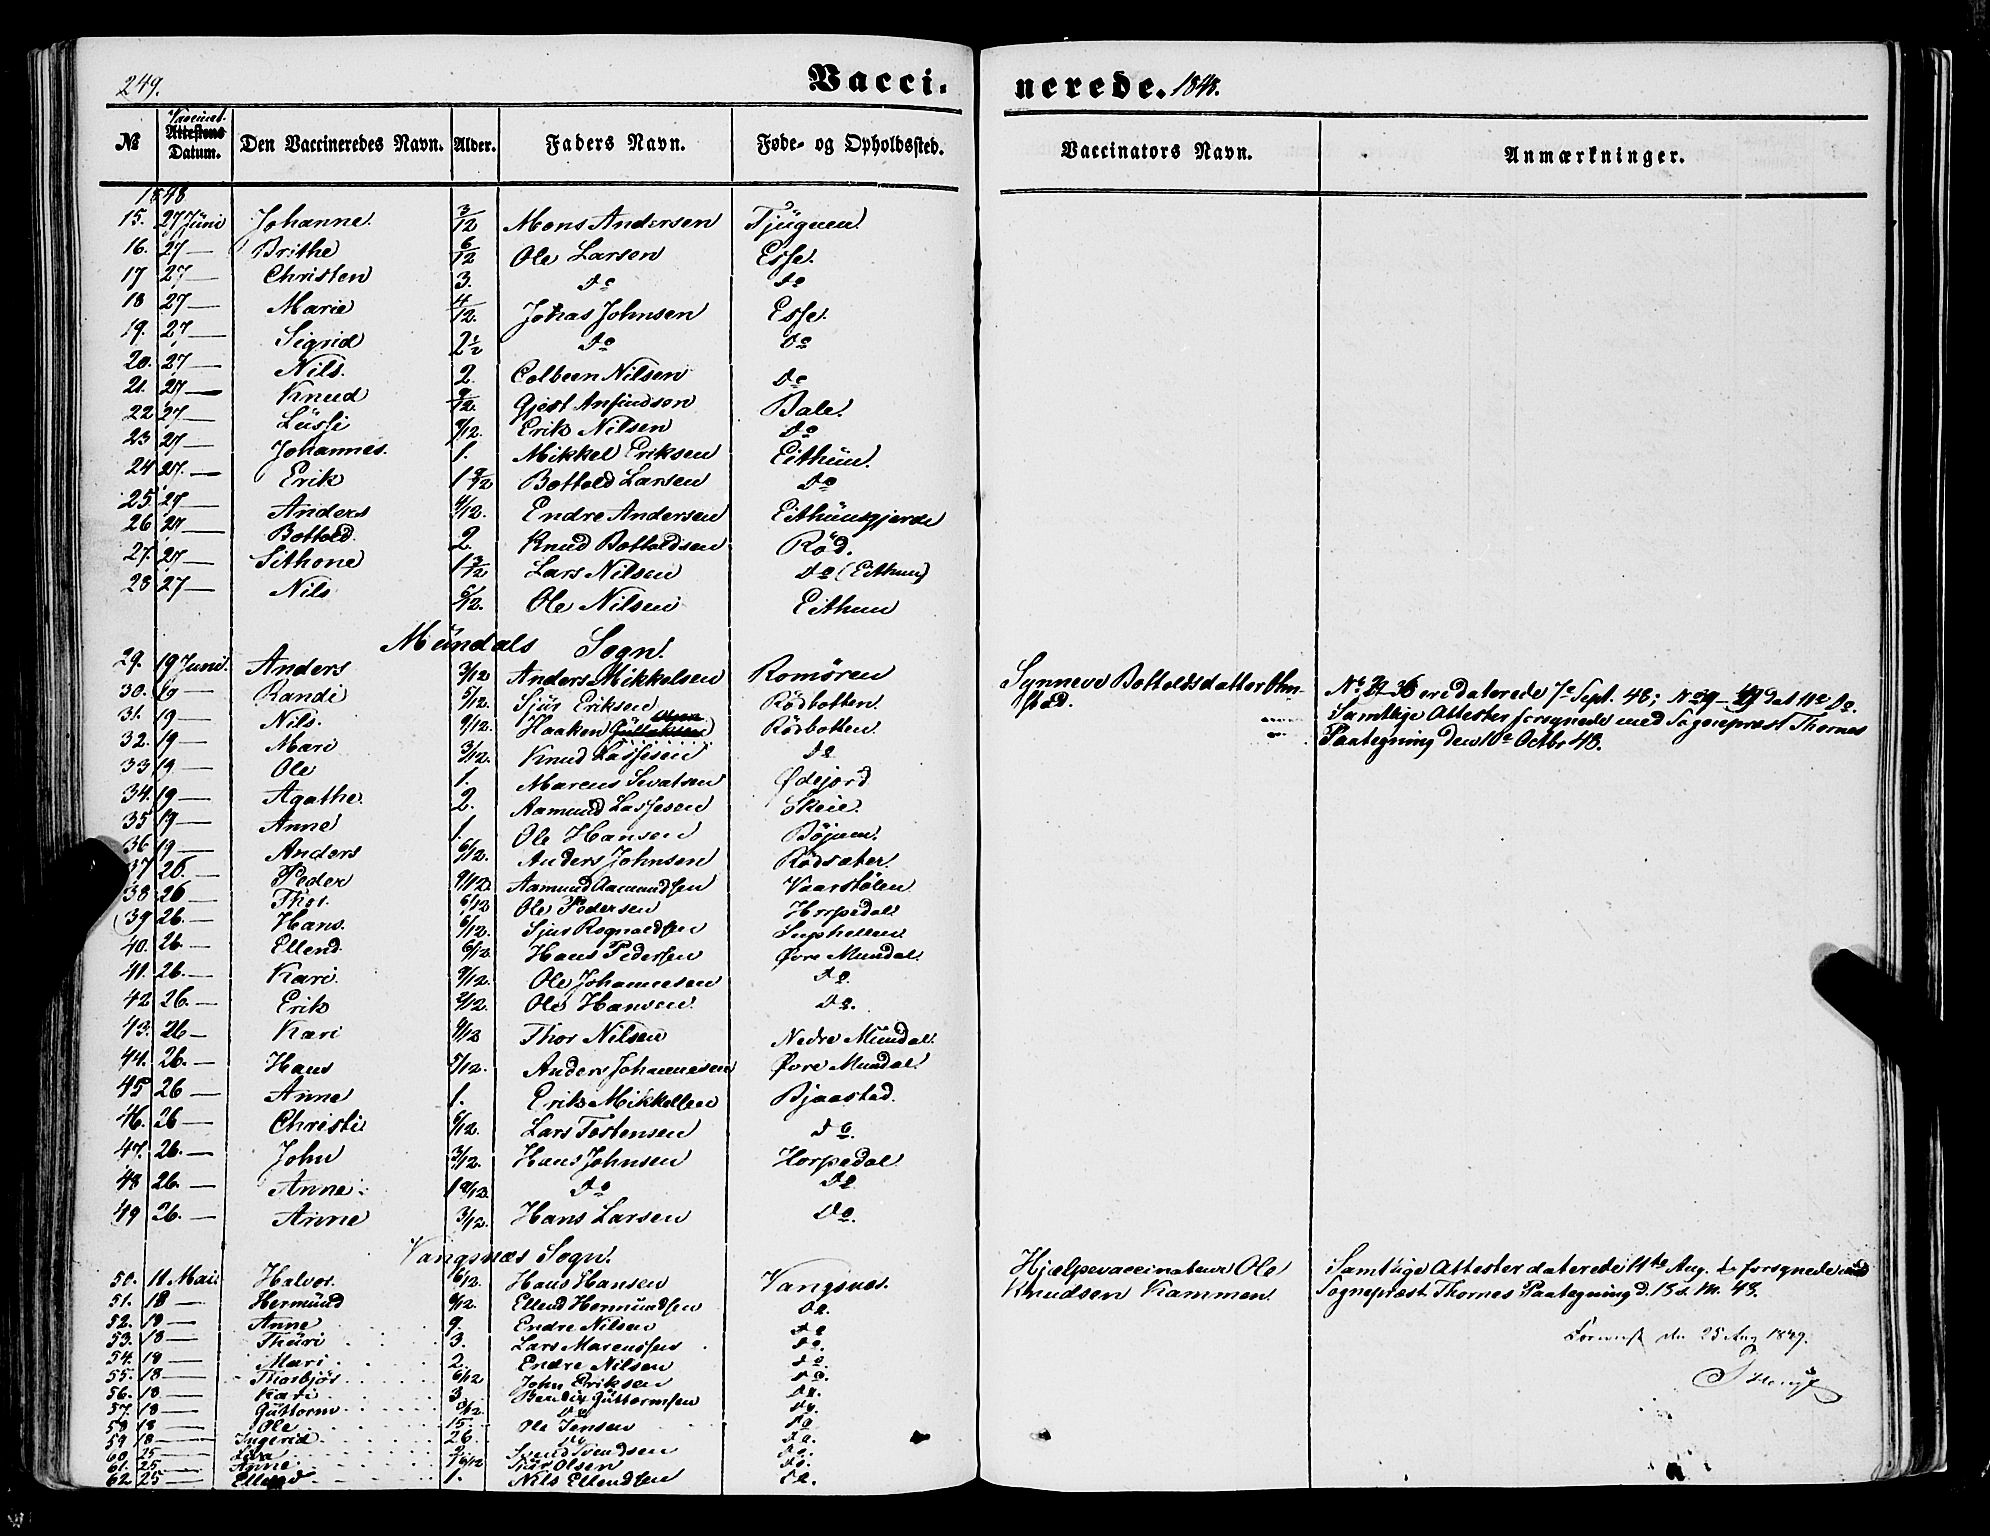 249.
Vacci-
nerede. 1848.
№ Vaccinat. Attestens Datum. Den Vaccineredes Navn. Alder. Faders Navn. Føde- og Opholdssted. Vaccinators Navn. Anmærkninger.
1848
15. 27 Juni Johanne 3/12 Mons Andersen Tjugum
16. 27 — Brithe 6/12 Ole Larsen Esse.
17 27 — Christen 3. Do Do
18 27 — Marie 4/12. Johas Johnsen Esse.
19. 27 — Sigrid 2½ Do Do
20. 27 — Nils. 2. Colbeen Nilsen Do
21. 27 — Knud 9/12. Gjest Anfindsen Bale.
22 27 — Lussi 9/12. Erik Nilsen Do
23 27 — Johannes. 1. Mikkel Eriksen Eithun.
24 27. — Erik 1 9/12 Bottold Larsen Do
25. 27 — Anders 4/12. Endre Andersen Eithunsgjerde
26 27 — Bottold. 2. Knud Bottoldsen Rød.
27. 27 — Sithone 1 3/12 Lars Nilsen Do (Eithun)
28 27 — Nils 5/12. Ole Nilsen Eithun
Mundals Sogn.
29. 19 Juni. Anders 3/12 Anders Mikkelsen Romøren Synneve Bottoldsdatter
30. 19 — Randi 5/12. Sjur Eriksen Rødbotten No 29-36 ere daterede 7e Sept. 48; No 39-49 dat 11e Do.
31. 19 — Nils. 9/12. Haaken Olsen Rødbotten Samtlige Attester forsynede med Sognepræst Thornes
32. 19 — Mari 3/12. Knud Lassesen Do Paategning den 10e Octbr 48.
33 19 — Ole 1. Marcus Sevatsen Ødejord
34. 19 — Agathe. 2. Aamund Lassesen Skeie.
35 19 — Anne 1. Ole Hansen Bøjum.
36 19 — Anders 6/12. Anders Johnsen Rødsæter.
37 26. — Peder 9/12. Aamund Aamundsen Vaarstølen
38 26 — Thor. 6/12 Ole Pedersen Horpedal
39 26. — Hans. 6/12. Sjur Rognaldsen
40. 26 — Ellend. 6/12. Hans Pedersen Øvre Mundal.
41. 26. — Kari. 9/12. Ole Johannesen Do.
42 26. — Erik 2/12. Ole Hansen. Do.
43. 26 — Kari 9/12 Thor Nilsen Nedre Mundal.
44. 26. — Hans 5/12. Anders Johannesen Øvre Mundal.
45 26 — Anne 1. Erik Mikkelsen Bjaastad.
46. 26 — Christi 6/12. Lars Tostensen Do.
47. 26. — John 3/12. Hans Johnsen Horpedal
48 26. — Anne. 1 9/12. Do Do
49 26. — Anne 3/12. Hans Larsen Do.
Vangsnæs Sogn.
50. 11 Mai. Halvor. 6/12. Hans Hansen Vangsnes. Hjælpevaccinateur Ole Samtlige Attester daterede 11te Aug. & forsynede med
51. 18 — Hermund 9/12. Ellend Hermundsen Do. Knudsen Kammen. Sognepræst Thornes Paategning d. 13 s. M. 48.
52. 18 — Anne 9. Endre Nilsen Do
53. 18 — Thuri 3. Lars Marcussen Do. den 25 Aug 1849.
54. 18 — Mari 2. Endre Nilsen Do
55. 18 — Thorbjør 6/12 John Eriksen Do.
56. 18 — Kari 3. Bendix Guttormsen Do.
57. 18 — Guttorm 3/12. Do Do.
58 18 — Ole 15. Ole Jensen Do
59 18 — Ingerid 26. Do Do.
60. 25 — Svend Svendsen Do.
61. 25 — Anne Olsen Do.
62 25 — Ellend 1. Nils Ellendsen Do.